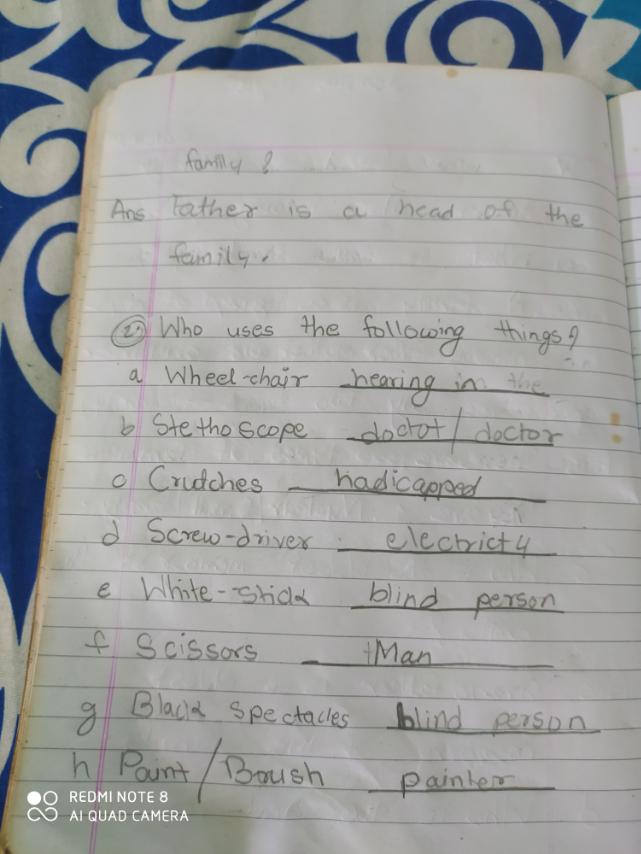 family ?
Ans Father is a head of the
family.
2. Who uses the following things?
a Wheel-chair hearing in the
b Stethoscope doctot/doctor
c Crutches hadicapped
d Screw-driver electricty
e White-stick blind person
f Scissors tMan
g Black spectacles blind person
h Paint/Boush painter
REDMI NOTE 8
AI QUAD CAMERA